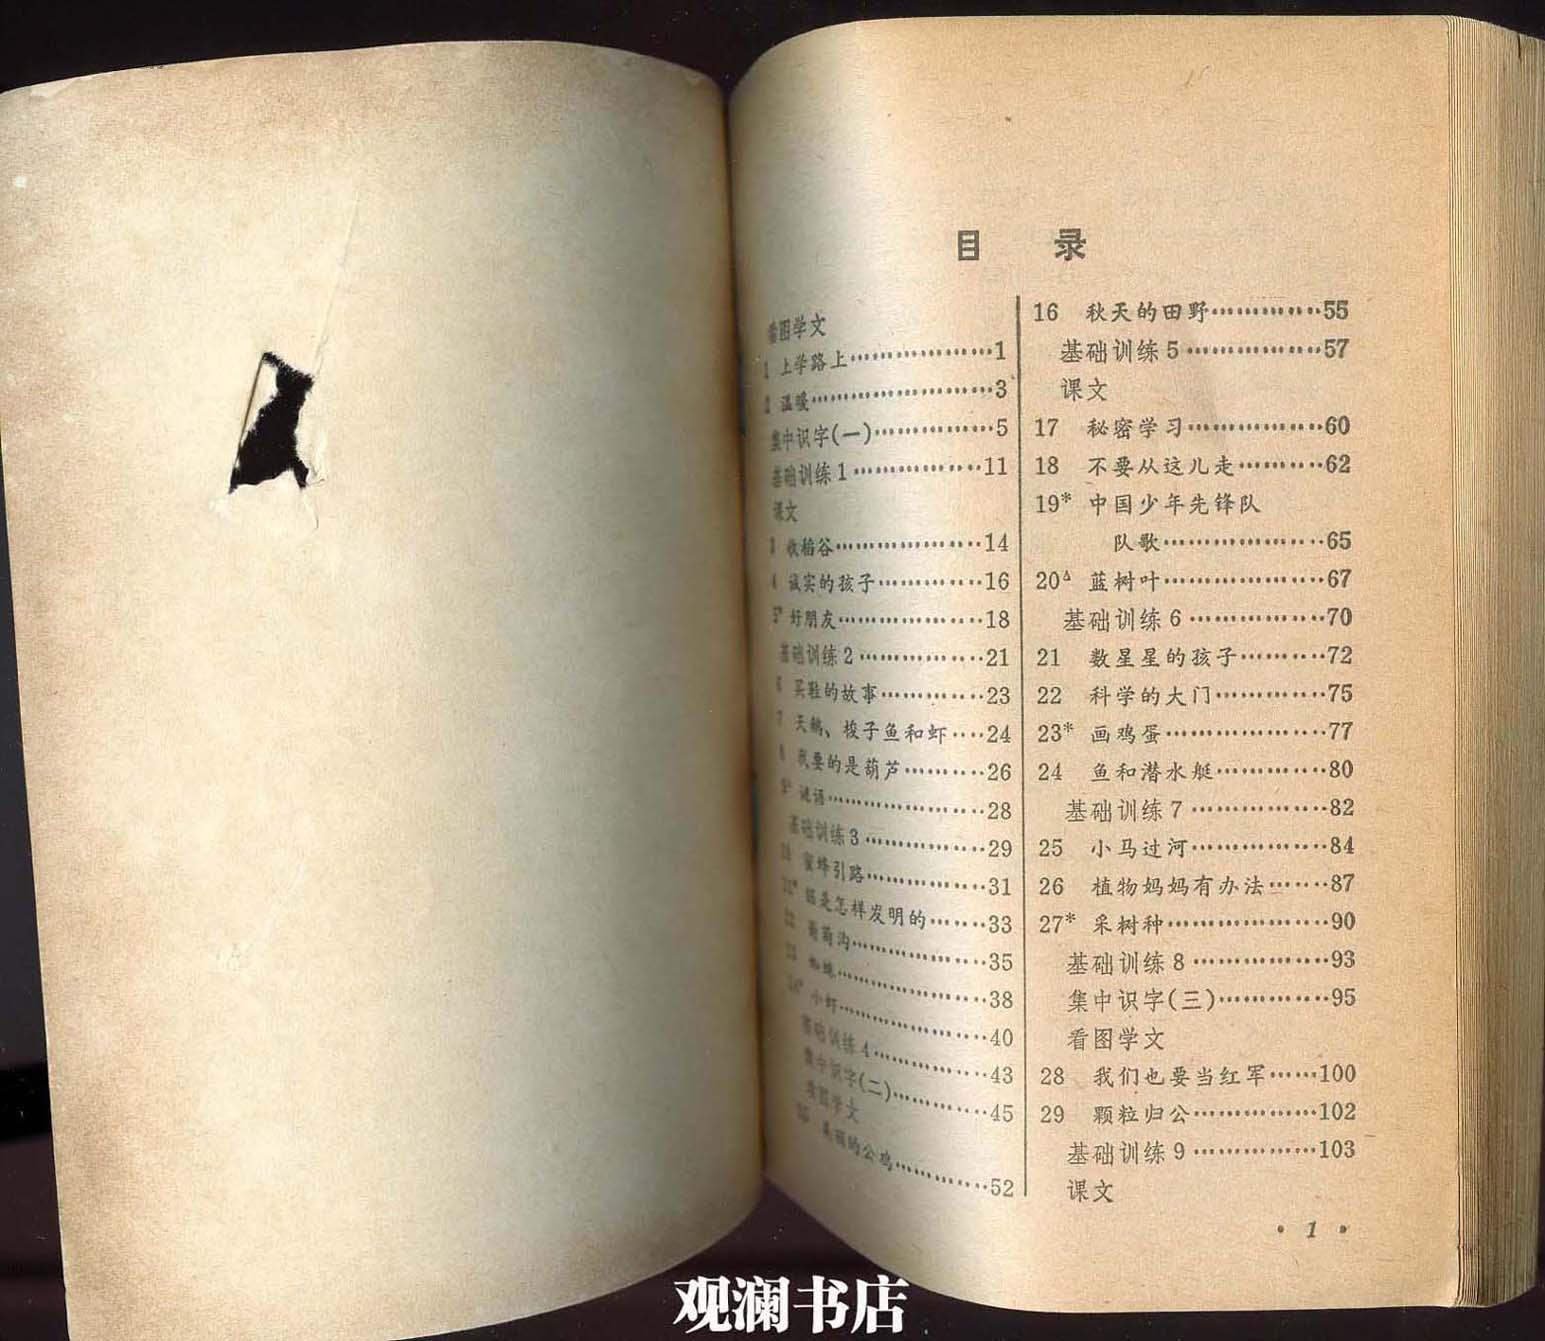 目 录
看图学文
1 上学路上………………1
2 温暖………………3
集中识字(一)………………5
基础训练1………………11
课文
3 收稻谷………………14
4 诚实的孩子………………16
5* 好朋友………………18
基础训练2………………21
6 买鞋的故事………………23
7 天鹅、梭子鱼和虾……24
8 我要的是葫芦…………26
9* 谜语………………28
基础训练3………………29
10 蜜蜂引路………………31
11* 锯是怎样发明的………33
12 葡萄沟………………35
13 蜘蛛………………38
14* 小虾………………40
基础训练4………………43
集中识字(二)………………45
看图学文
15 美丽的公鸡………………52
16 秋天的田野………………55
基础训练5………………57
课文
17 秘密学习………………60
18 不要从这儿走…………62
19* 中国少年先锋队
队歌………………65
20△ 蓝树叶………………67
基础训练6………………70
21 数星星的孩子…………72
22 科学的大门……………75
23* 画鸡蛋………………77
24 鱼和潜水艇……………80
基础训练7………………82
25 小马过河………………84
26 植物妈妈有办法………87
27* 采树种………………90
基础训练8………………93
集中识字(三)……………95
看图学文
28 我们也要当红军……100
29 颗粒归公………………102
基础训练9………………103
课文
· 1 ·
观澜书店